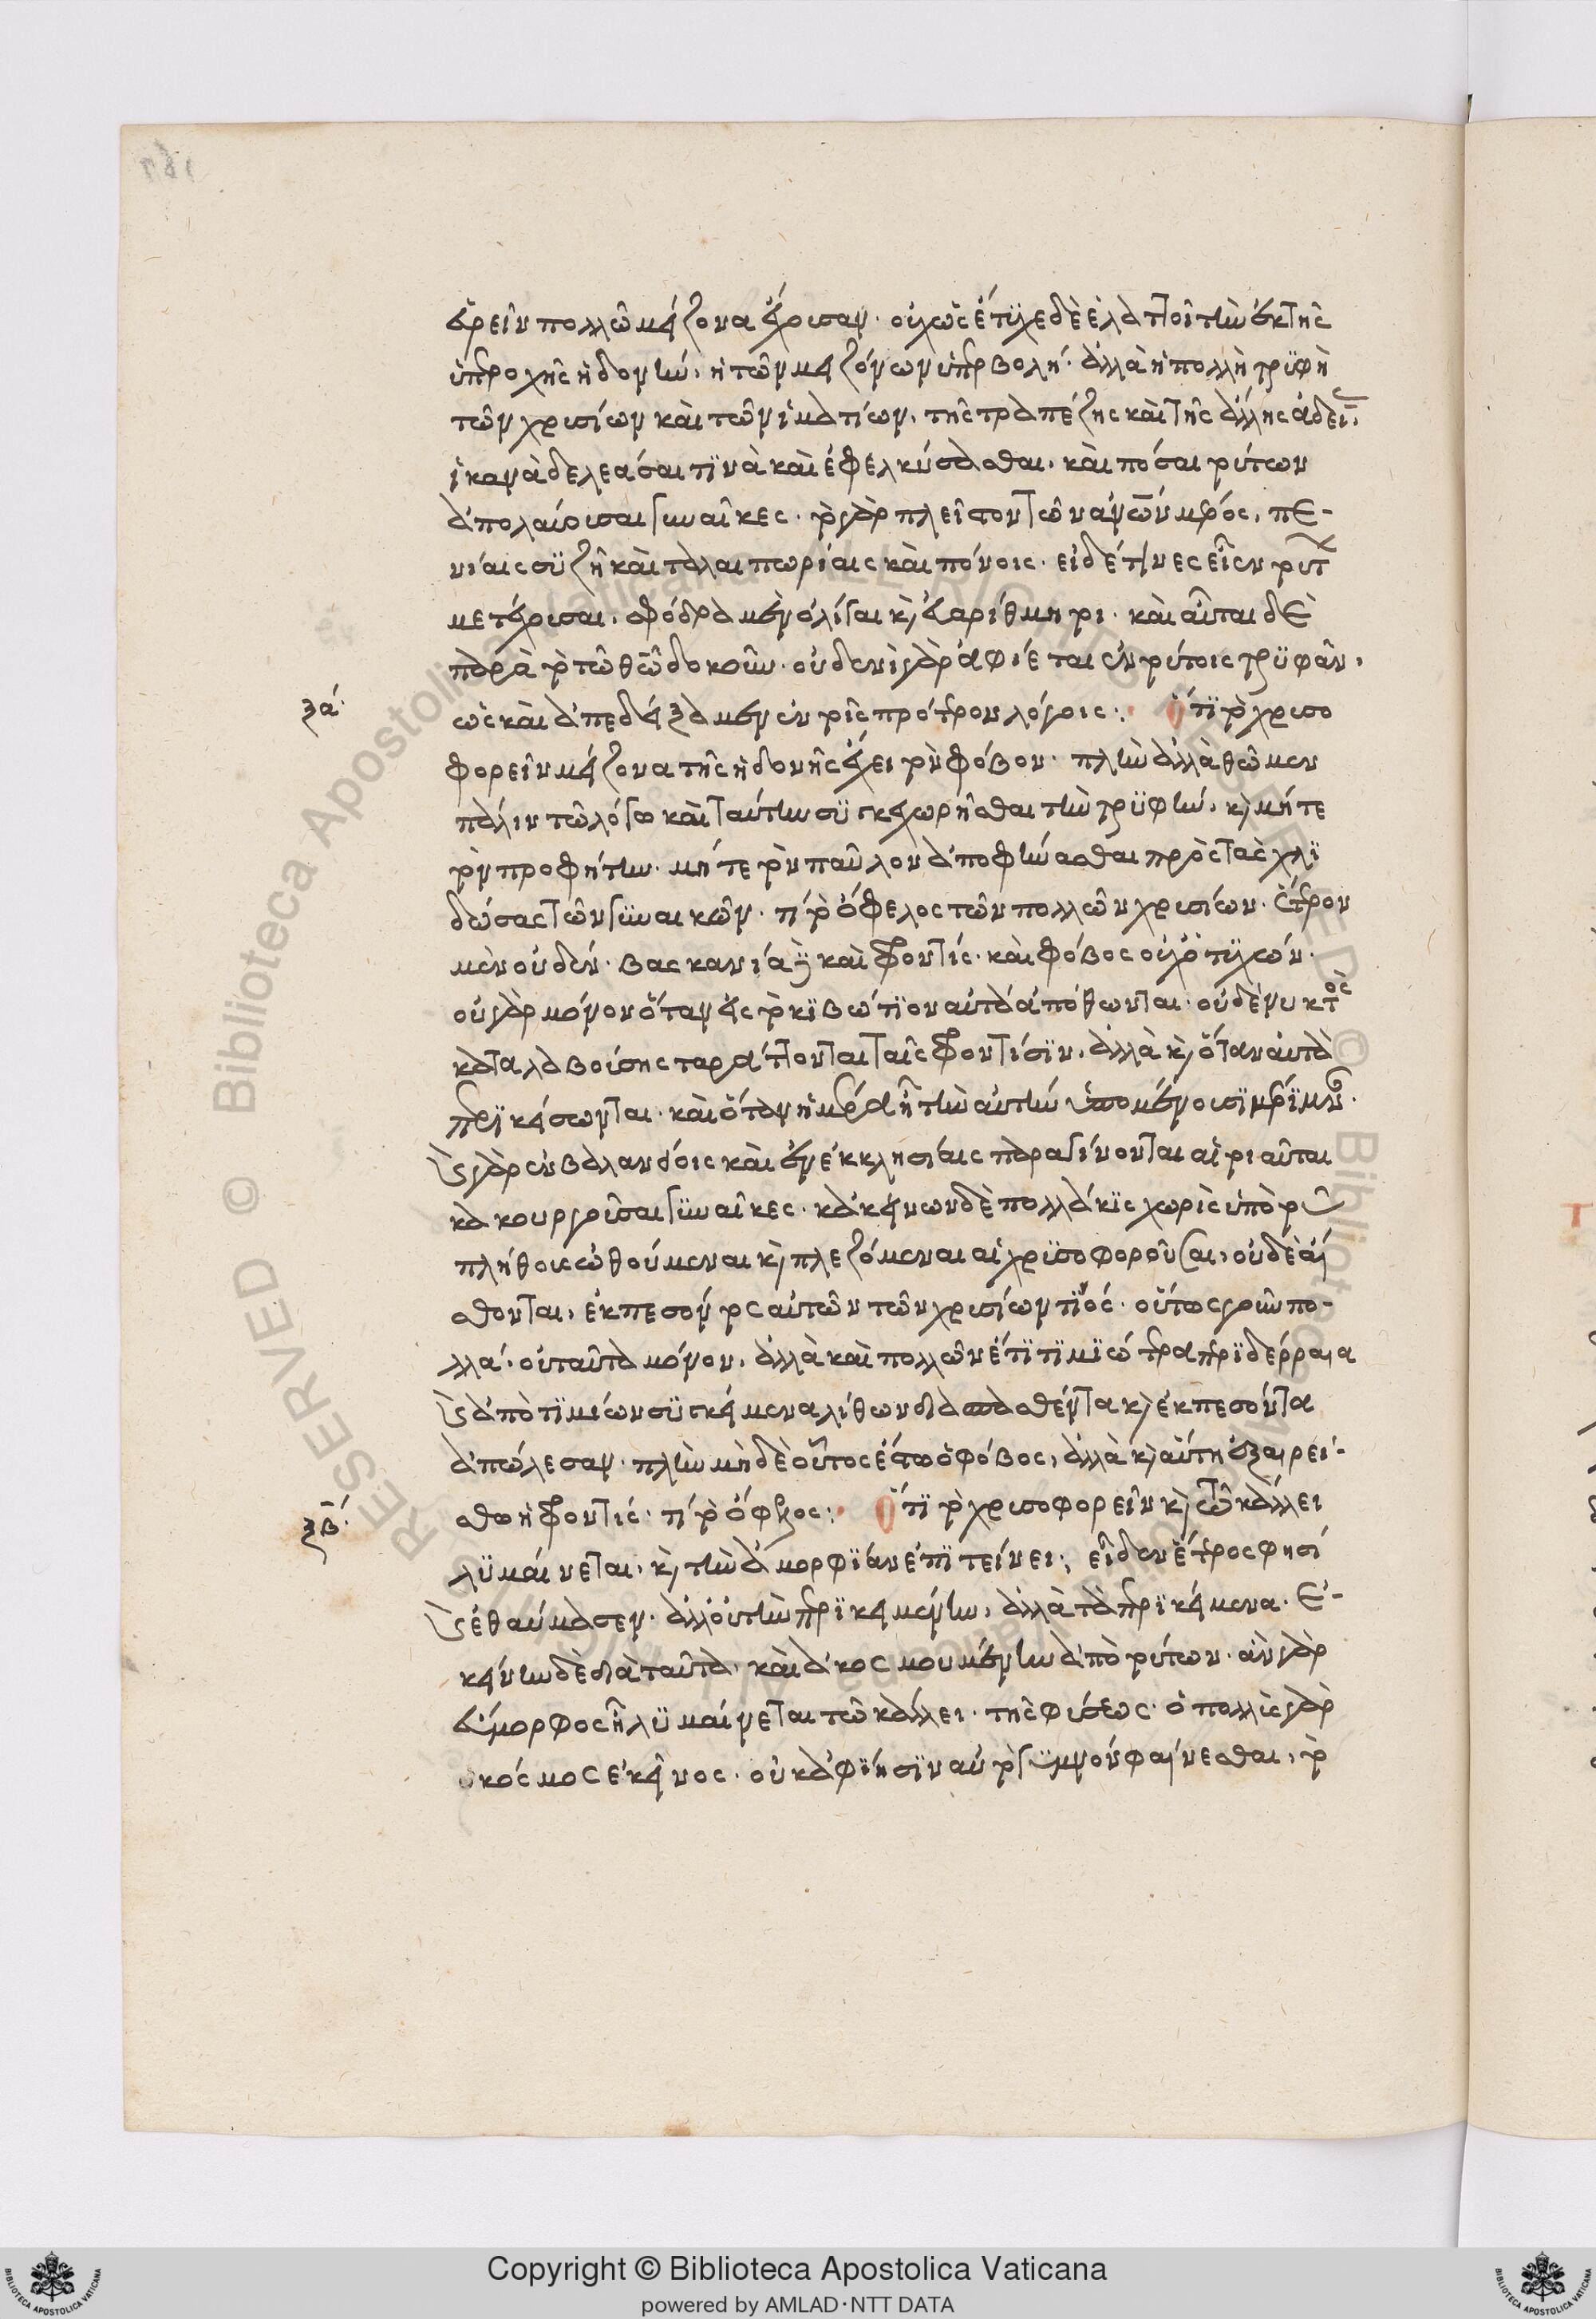 εὑρεῖν πολλῶ μείζονα ἔχουσαν· οὐχ ὡς ἔτυχε δὲ ἐλαττοῖ τὴν ἐκ τῆς
ὑπεροχῆς ἡδονὴν, ἡ τῶν μειζόνων ὑπερβολή· ἀλλὰ ἡ πολλὴ τρυφὴ
τῶν χρυσίων καὶ τῶν ἱματίων, τῆς τραπέζης καὶ τῆς ἄλλης ἀδείας,
ἱκανὰ δελεάσαι τινὰ καὶ ἐφελκύσασθαι, καὶ πόσαι τούτων
ἀπολαύουσαι γυναῖκες· τὸ γὰρ πλεῖστον τῶν ἀνων μέρος, πε-
νίαις συζῆ καὶ ταλαιπωρίαις καὶ πόνοις· εἰ δέ τινες εἶεν τούτων
μετέχουσαι, σφόδρα μὲν ὀλίγαι κ εὐαρίθμητοι· καὶ αὗται δὲ
παρὰ τὸ τῶ θεῶ δοκοῦν· οὐδενὶ γὰρ ἀφίεται ἐν τούτοις τρυφᾶν,
ξα´· ὡς καὶ ἀπεδείξαμεν ἐν τοῖς πρότερον λόγοις: Ὅτι τὸ χρυσο
φορεῖν μείζονα τῆς ἡδονῆς ἔχει τὸν φόβον· πλὴν ἀλλὰ θῶμεν
πάλιν τῶ λόγω καὶ ταύτην συγκεχωρῆσθαι τὴν τρυφὴν, κ μήτε
τὸν προφήτην· μήτε τὸν παῦλον ἀποφήνασθαι πρὸς τὰς χλι
δώσας τῶν γυναικῶν· τί τὸ ὄφελος τῶν πολλῶν χρυσίων· ἕτερον
μὲν οὐδὲν· βασκανία δὲ καὶ φροντίς· καὶ φόβος οὐχ ὁ τυχών·
οὐ γὰρ μόνον ὅταν εἰς τὸ κιβώτιον αὐτὰ ἀπόθωνται· οὐδὲ νυκτὸς
καταλαβούσης ταράττονται ταῖς φροντίσιν, ἀλλὰ κ ὅταν αὐτὰ
περικέωνται· καὶ ὅταν ἡμέρα ἦ τὴν αὐτὴν ὑπομένουσι μέριμναν·
καὶ γὰρ ἐν βαλανείοις καὶ ἐν ἐκκλησίαις παραγίνονται αἱ τοιαῦται
κακουργοῦσαι γυναῖκες· κἀκείνων δὲ πολλάκις χωρὶς ὑπὸ τοῦ
πλήθους ὠθούμεναι κ πιεζόμεναι αἱ χρυσοφοροῦσαι, οὐδὲ αἰ
σθονται, ἐκπεσόντος αὐτῶν τῶν χρυσίων τινός· οὕτως γοῦν πο-
λλαί, οὐ ταῦτα μόνον, ἀλλὰ καὶ πολλῶν ἔτι τιμιώτερα περιδέρραια
καὶ ἀπὸ τιμίων συγκείμενα λίθων διασπασθέντα κ ἐκπεσόντα
ἀπώλεσαν· πλὴν μηδὲ οὗτος ἔστω ὁ φόβος, ἀλλὰ κ αὕτη ἐξαιρεί-
ξβ´· σθω ἡ φροντίς· τί τὸ ὄφελος: Ὅτι τὸ χρυσοφορεῖν κ τῶ κάλλει
λυμαίνεται, κ τὴν ἀμορφίαν ἐπιτείνει; εἶδεν ἕτερος φησί
καὶ ἐθαύμασεν· ἀλλ' οὐ τὴν περικειμένην, ἀλλὰ τὰ περικείμενα· ἐ-
κείνην δὲ διὰ ταῦτα, καὶ ἄκοσμου μένην ἀπὸ τούτων· ἂν γὰρ
εὔμορφος ἦ λυμαίνεται τῶ κάλλει· τῆς φύσεως· ὁ πολὺς γὰρ
κόσμος ἐκεῖνος· οὐκ ἀφίησιν αὐτὸ γυμνὸν φαίνεσθαι, τὸ
Copyright © Biblioteca Apostolica Vaticana
powered by AMLAD·NTT DATA